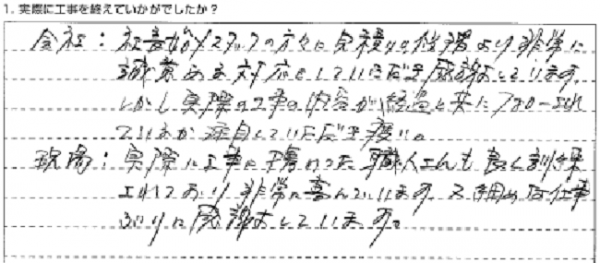 1. 実際に工事を終えていかがでしたか？
会社：社長及びスタッフの方々に見積りの段階より非常に
誠意ある対応をしていただき感謝しています。
しかし実際の工事の内容が経過と共にフォローされ
ているか 注目していただき度い。
現場：実際に工事に携わった職人さんも良く訓練
されており非常に喜んでいます。又細めな仕事
ぶりに感謝をしています。